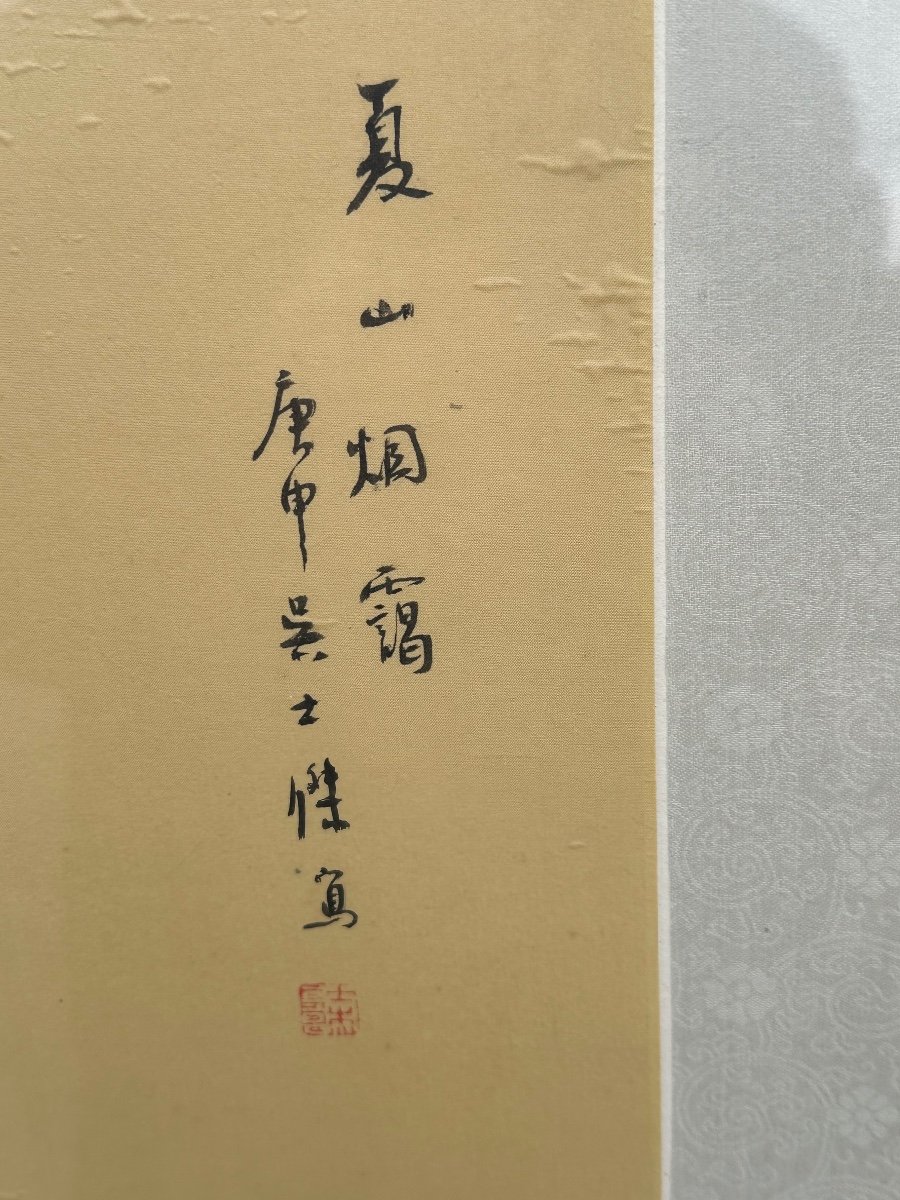 夏山烟靄
庚申吳士傑寫